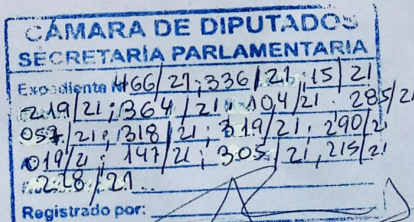 CÁMARA DE DIPUTADOS
SECRETARÍA PARLAMENTARIA
Expediente Nº 466/21; 336/21; 15/21
219/21; 364/21; 104/21. 285/21
059/21; 318/21; 319/21; 290/21
019/21; 147/21; 305/21, 215/21
228/21
Registrado por: